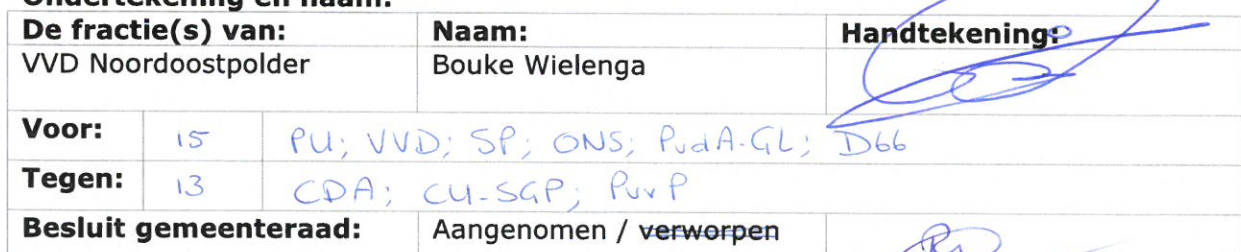 Ondertekening en naam:
De fractie(s) van: Naam: Handtekening:
VVD Noordoostpolder Bouke Wielenga
Voor: 15 PU; VVD; SP; ONS; PvdA-GL; D66
Tegen: 13 CDA; CU-SGP; PvvP
Besluit gemeenteraad: Aangenomen / verworpen